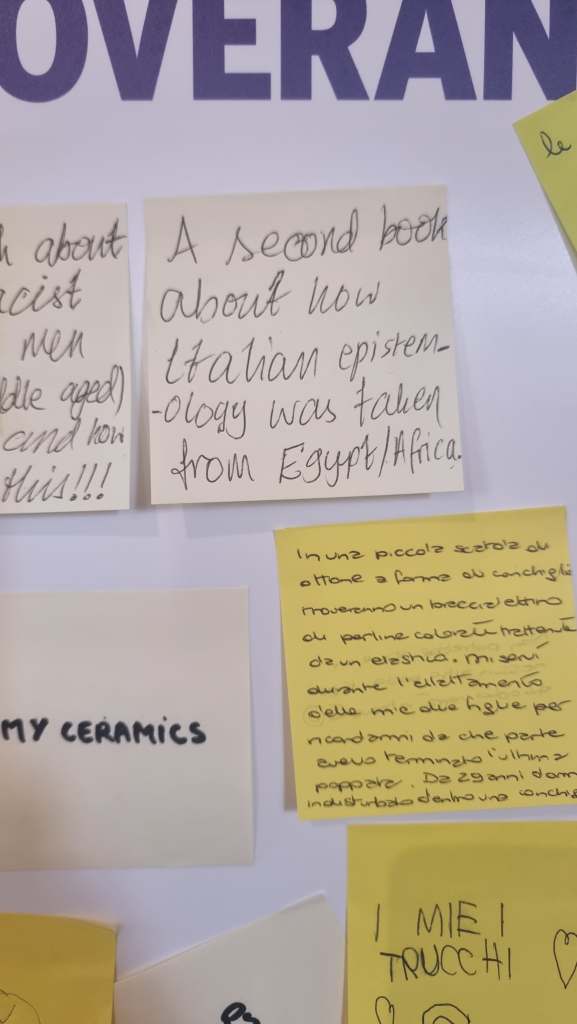 OVERAN
le
about
acist
men
ddle aged)
and how
this!!!
A second book
about how
Italian epistem-
-ology was taken
from Egypt/Africa.
In una piccola scatola di
ottone a forma di conchiglia
troveranno un braccialettino
di perline colorate trattenute
da un elastico. Mi servì
durante l'allattamento
delle mie due figlie per
ricordarmi da che parte
avevo terminato l'ultima
poppata. Da 29 anni dorme
indisturbato dentro una conchig
MY CERAMICS
I MIE I
TRUCCHI